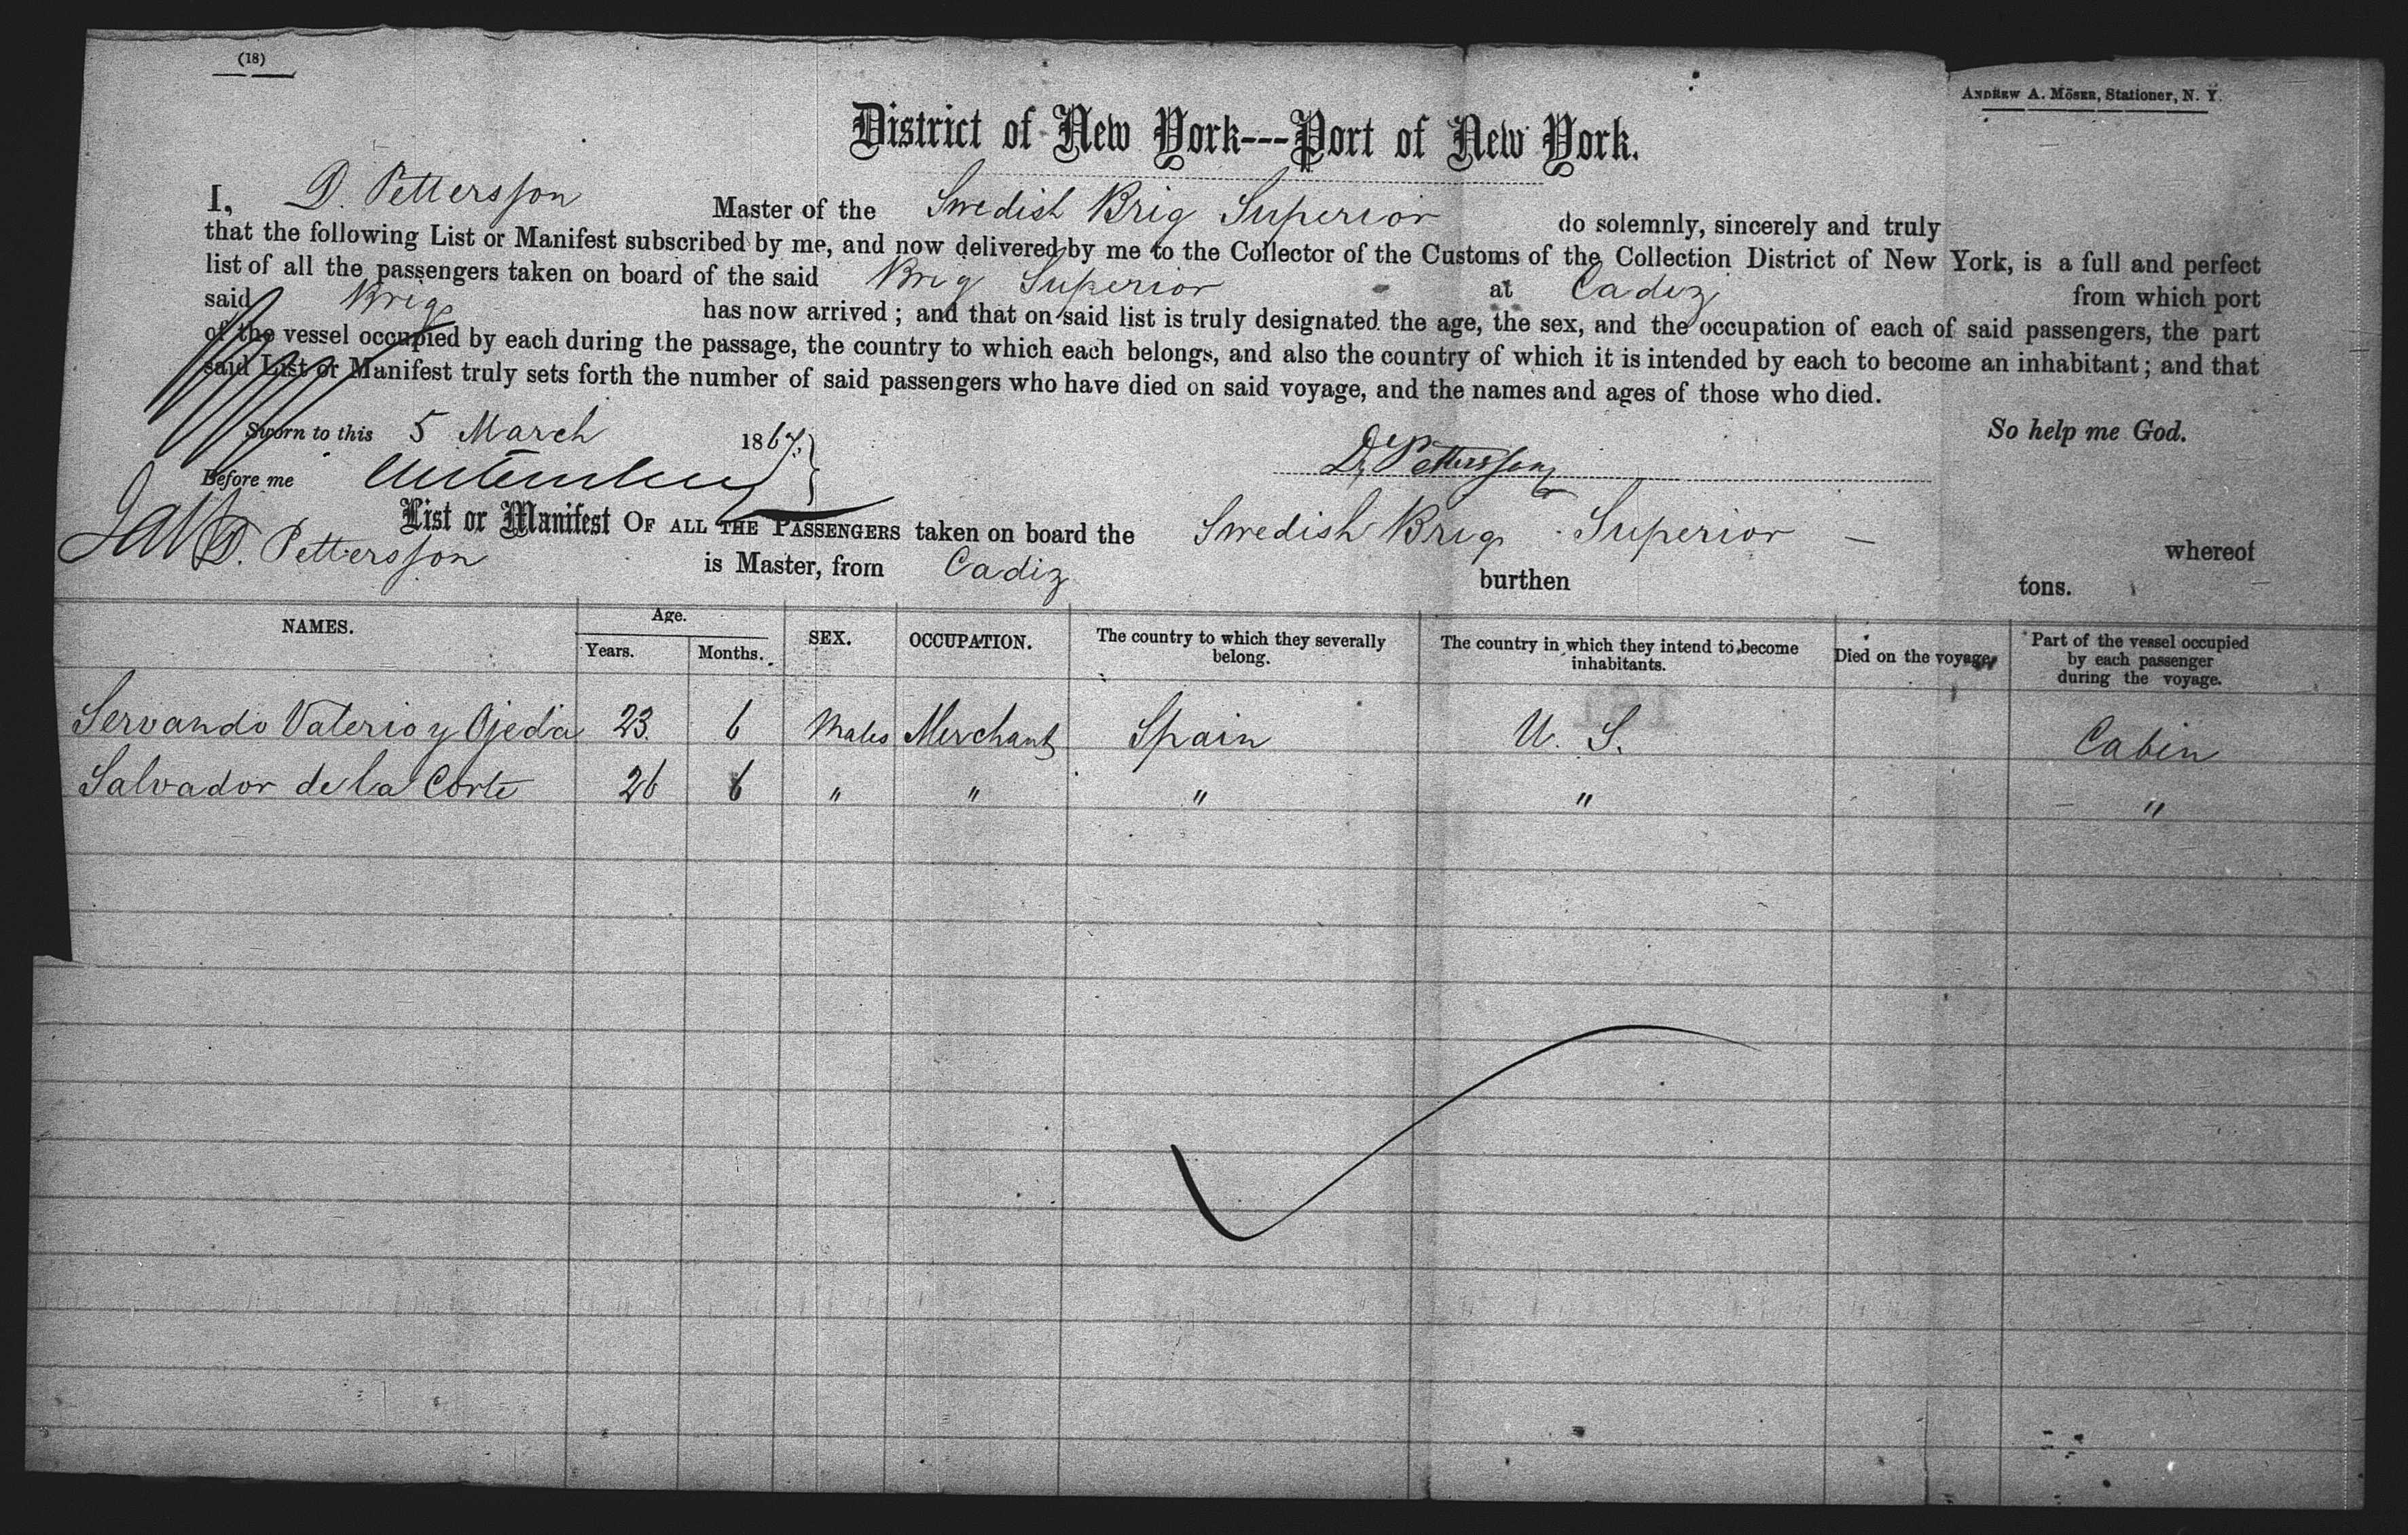 (18)
ANDREW A. MÖSER, Stationer, N. Y.
District of New York---Port of New York.
I, D. Pettersson Master of the Swedish Brig Superior do solemnly, sincerely and truly
that the following List or Manifest subscribed by me, and now delivered by me to the Collector of the Customs of the Collection District of New York, is a full and perfect
list of all the passengers taken on board of the said Brig Superior at Cadiz from which port
said Brig has now arrived; and that on said list is truly designated the age, the sex, and the occupation of each of said passengers, the part
of the vessel occupied by each during the passage, the country to which each belongs, and also the country of which it is intended by each to become an inhabitant; and that
said List or Manifest truly sets forth the number of said passengers who have died on said voyage, and the names and ages of those who died.
So help me God.
Sworn to this 5 March 1867.
D. Pettersson
Before me
List or Manifest OF ALL THE PASSENGERS taken on board the Swedish Brig Superior — whereof
D. Pettersson is Master, from Cadiz burthen tons.
NAMES. Age. Years. Months. SEX. OCCUPATION. The country to which they severally belong. The country in which they intend to become inhabitants. Died on the voyage. Part of the vessel occupied by each passenger during the voyage.
Servando Valerio y Ojeda 23. 6 Males Merchants Spain U. S. Cabin
Salvador de la Corte 26 6 " " " " "